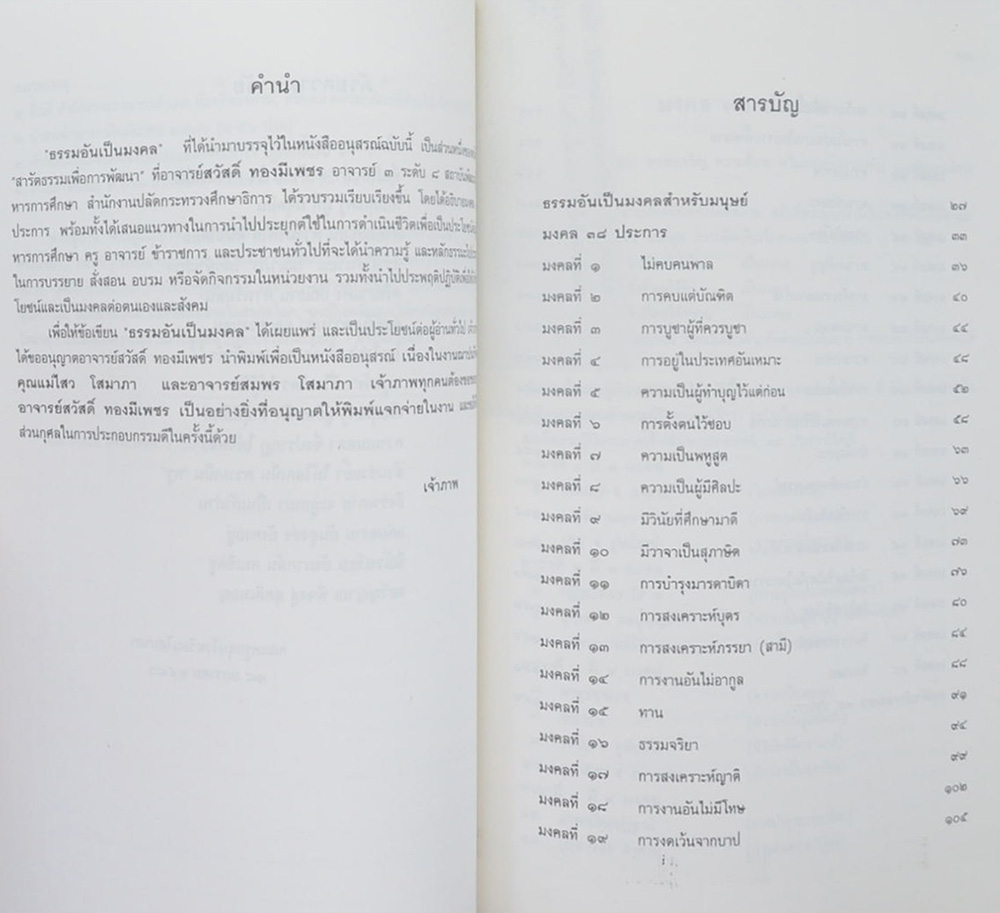 คำนำ
"ธรรมอันเป็นมงคล" ที่ได้นำมาบรรจุไว้ในหนังสืออนุสรณ์ฉบับนี้ เป็นส่วนหนึ่ง
"สารัตธรรมเพื่อการพัฒนา" ที่อาจารย์สวัสดิ์ ทองมีเพชร อาจารย์ ๓ ระดับ ๘ สถาบัน
หารการศึกษา สำนักงานปลัดกระทรวงศึกษาธิการ ได้รวบรวมเรียบเรียงขึ้น โดยได้อธิบาย
ประการ พร้อมทั้งได้เสนอแนวทางในการนำไปประยุกต์ใช้ในการดำเนินชีวิตเพื่อเป็นประโยชน์
หารการศึกษา ครู อาจารย์ ข้าราชการ และประชาชนทั่วไปที่จะได้นำความรู้ และหลักธรรม
ในการบรรยาย สั่งสอน อบรม หรือจัดกิจกรรมในหน่วยงาน รวมทั้งนำไปประพฤติปฏิบัติ
โยชน์และเป็นมงคลต่อตนเองและสังคม
เพื่อให้ข้อเขียน "ธรรมอันเป็นมงคล" ได้เผยแพร่ และเป็นประโยชน์ต่อผู้อ่านทั่วไป
ได้ขออนุญาตอาจารย์สวัสดิ์ ทองมีเพชร นำพิมพ์เพื่อเป็นหนังสืออนุสรณ์ เนื่องในงาน
คุณแม่ไสว โสมาภา และอาจารย์สมพร โสมาภา เจ้าภาพทุกคนต้อง
อาจารย์สวัสดิ์ ทองมีเพชร เป็นอย่างยิ่งที่อนุญาตให้พิมพ์แจกจ่ายในงาน
ส่วนกุศลในการประกอบกรรมดีในครั้งนี้ด้วย
เจ้าภาพ
สารบัญ
ธรรมอันเป็นมงคลสำหรับมนุษย์ ๒๗
มงคล ๓๘ ประการ ๓๓
มงคลที่ ๑ ไม่คบคนพาล ๓๖
มงคลที่ ๒ การคบแต่บัณฑิต ๔๐
มงคลที่ ๓ การบูชาผู้ที่ควรบูชา ๔๔
มงคลที่ ๔ การอยู่ในประเทศอันเหมาะ ๔๘
มงคลที่ ๕ ความเป็นผู้ทำบุญไว้แต่ก่อน ๕๒
มงคลที่ ๖ การตั้งตนไว้ชอบ ๕๘
มงคลที่ ๗ ความเป็นพหูสูต ๖๓
มงคลที่ ๘ ความเป็นผู้มีศิลปะ ๖๖
มงคลที่ ๙ มีวินัยที่ศึกษามาดี ๖๙
มงคลที่ ๑๐ มีวาจาเป็นสุภาษิต ๗๓
มงคลที่ ๑๑ การบำรุงมารดาบิดา ๗๖
มงคลที่ ๑๒ การสงเคราะห์บุตร ๘๐
มงคลที่ ๑๓ การสงเคราะห์ภรรยา (สามี) ๘๔
มงคลที่ ๑๔ การงานอันไม่อากูล ๘๘
มงคลที่ ๑๕ ทาน ๙๑
มงคลที่ ๑๖ ธรรมจริยา ๙๔
มงคลที่ ๑๗ การสงเคราะห์ญาติ ๙๙
มงคลที่ ๑๘ การงานอันไม่มีโทษ ๑๐๒
มงคลที่ ๑๙ การงดเว้นจากบาป ๑๐๕